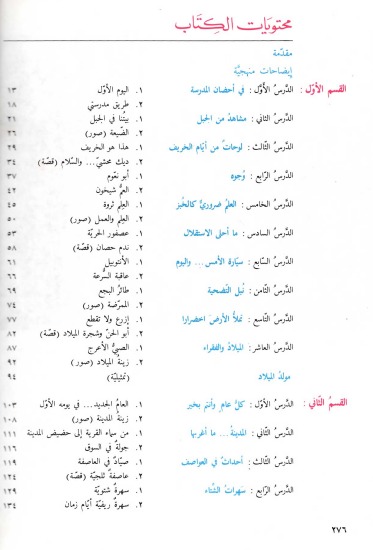 محتويات الكِتَاب
مقدّمة
إيضاحات منهجيَّة
القسم الأوَّل : الدَّرسُ الأوَّل : في أحضان المدرسة ١. اليوم الأوّل ١٣
٢. طريق مدرستي ١٨
الدَّرسُ الثاني : مشاهدُ من الجبل ١. بيتُنا في الجبل ٢١
٢. الضَّيعة (صور) ٢٦
الدَّرسُ الثالث : لوحاتٌ من أيّام الخريف ١. هذا هو الخريف ٢٩
٢. ديك محشيّ... والسلام (قصّة) ٣٤
الدَّرسُ الرابع : وُجوه ١. أبو نعّوم ٣٧
٢. العمُّ شيخون ٤٢
الدَّرسُ الخامس : العلمُ ضروريٌّ كالخُبز ١. العِلمُ ثروة ٤٥
٢. العِلم والعمل (صور) ٥٠
الدَّرسُ السادس : ما أحلى الاستقلال ١. عصفور الحريّة ٥٣
٢. ندم حصان (قصّة) ٥٨
الدَّرسُ السّابع : سيّارة الأمس... واليوم ١. الأُتوبيل ٦١
٢. عاقبة السُّرعة ٦٦
الدَّرسُ الثامن : نُبل التَّضحية ١. طائرُ البجع ٦٩
٢. الممرّضة (صور) ٧٤
الدَّرسُ التاسع : نملأُ الأرضَ اخضرارا ١. إزرع ولا تقطع ٧٧
٢. أبو الحنّ وشجرة الميلاد (قصّة) ٨٢
الدَّرسُ العاشر : الميلاد والفقراء ١. الصبيُّ الأعرج ٨٧
٢. زينة الميلاد (صور) ٩٢
مولدُ الميلاد (تمثيليّة) ٩٤
القسم الثّاني : الدَّرسُ الأول : كلَّ عامٍ وأنتم بخير ١. العامُ الجديد... في يومه الأوّل ١٠٣
٢. زينةُ المدينة (صور) ١٠٨
الدَّرسُ الثاني : المدينةُ... ما أغربها ١. من سماء القرية إلى حضيض المدينة ١١١
٢. جولةٌ في السوق ١١٦
الدَّرسُ الثالث : أحداثٌ في العواصف ١. صيّادٌ في العاصفة ١١٩
٢. عاصفةٌ ثلجيّة (قصّة) ١٢٤
الدَّرسُ الرّابع : سَهَراتُ الشّتاء ١. سهرةٌ شتويّة ١٢٩
٢. سهرةٌ ريفيّة أيّام زمان ١٣٤
٢٧٦